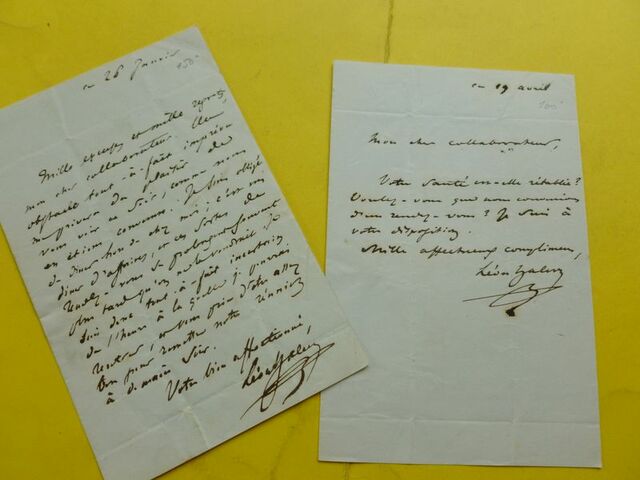 ce 26 Janvier
150-
Mille excuses et mille regrets,
mon cher collaborateur. Un
obstacle tout-à-fait imprévu
me privera du plaisir de
vous voir ce soir, comme nous
en étions convenus. Je suis obligé
de dîner hors de chez moi; c'est un
dîner d'affaires, et ces sortes de
rendez-vous se prolongent souvent
plus tard qu'on ne le voudrait. Je
suis donc tout-à-fait incertain
de l'heure à laquelle je pourrai
rentrer, et vous prie d'être assez
bon pour remettre notre réunion
à demain soir.
Votre bien affectionné,
Léon Halévy
ce 19 avril
100-
Mon cher collaborateur,
Votre santé est-elle rétablie?
Voulez-vous que nous convenions
d'un rendez-vous? Je suis à
votre disposition.
Mille affectueux complimens,
Léon Halévy